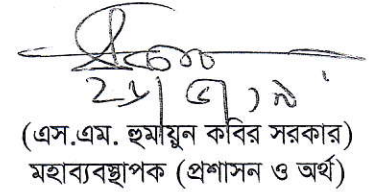 ২১।৫।১৯
(এস.এম. হুমায়ুন কবির সরকার)
মহাব্যবস্থাপক (প্রশাসন ও অর্থ)